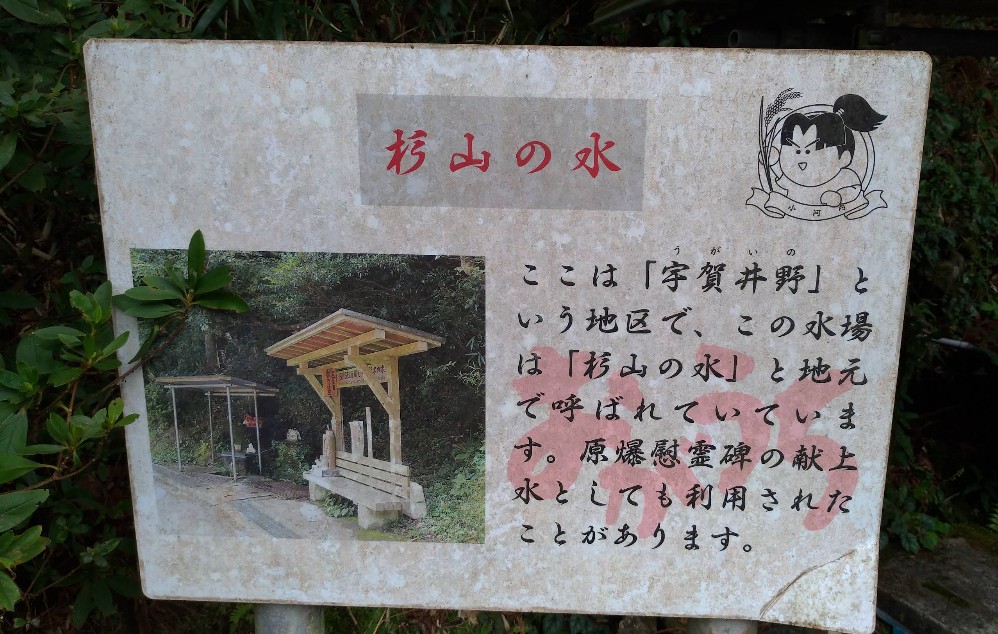 杉山の水
小河内
うがいの
ここは「宇賀井野」と
いう地区で、この水場
は「杉山の水」と地元
で呼ばれていていま
す。原爆慰霊碑の献上
水としても利用された
ことがあります。